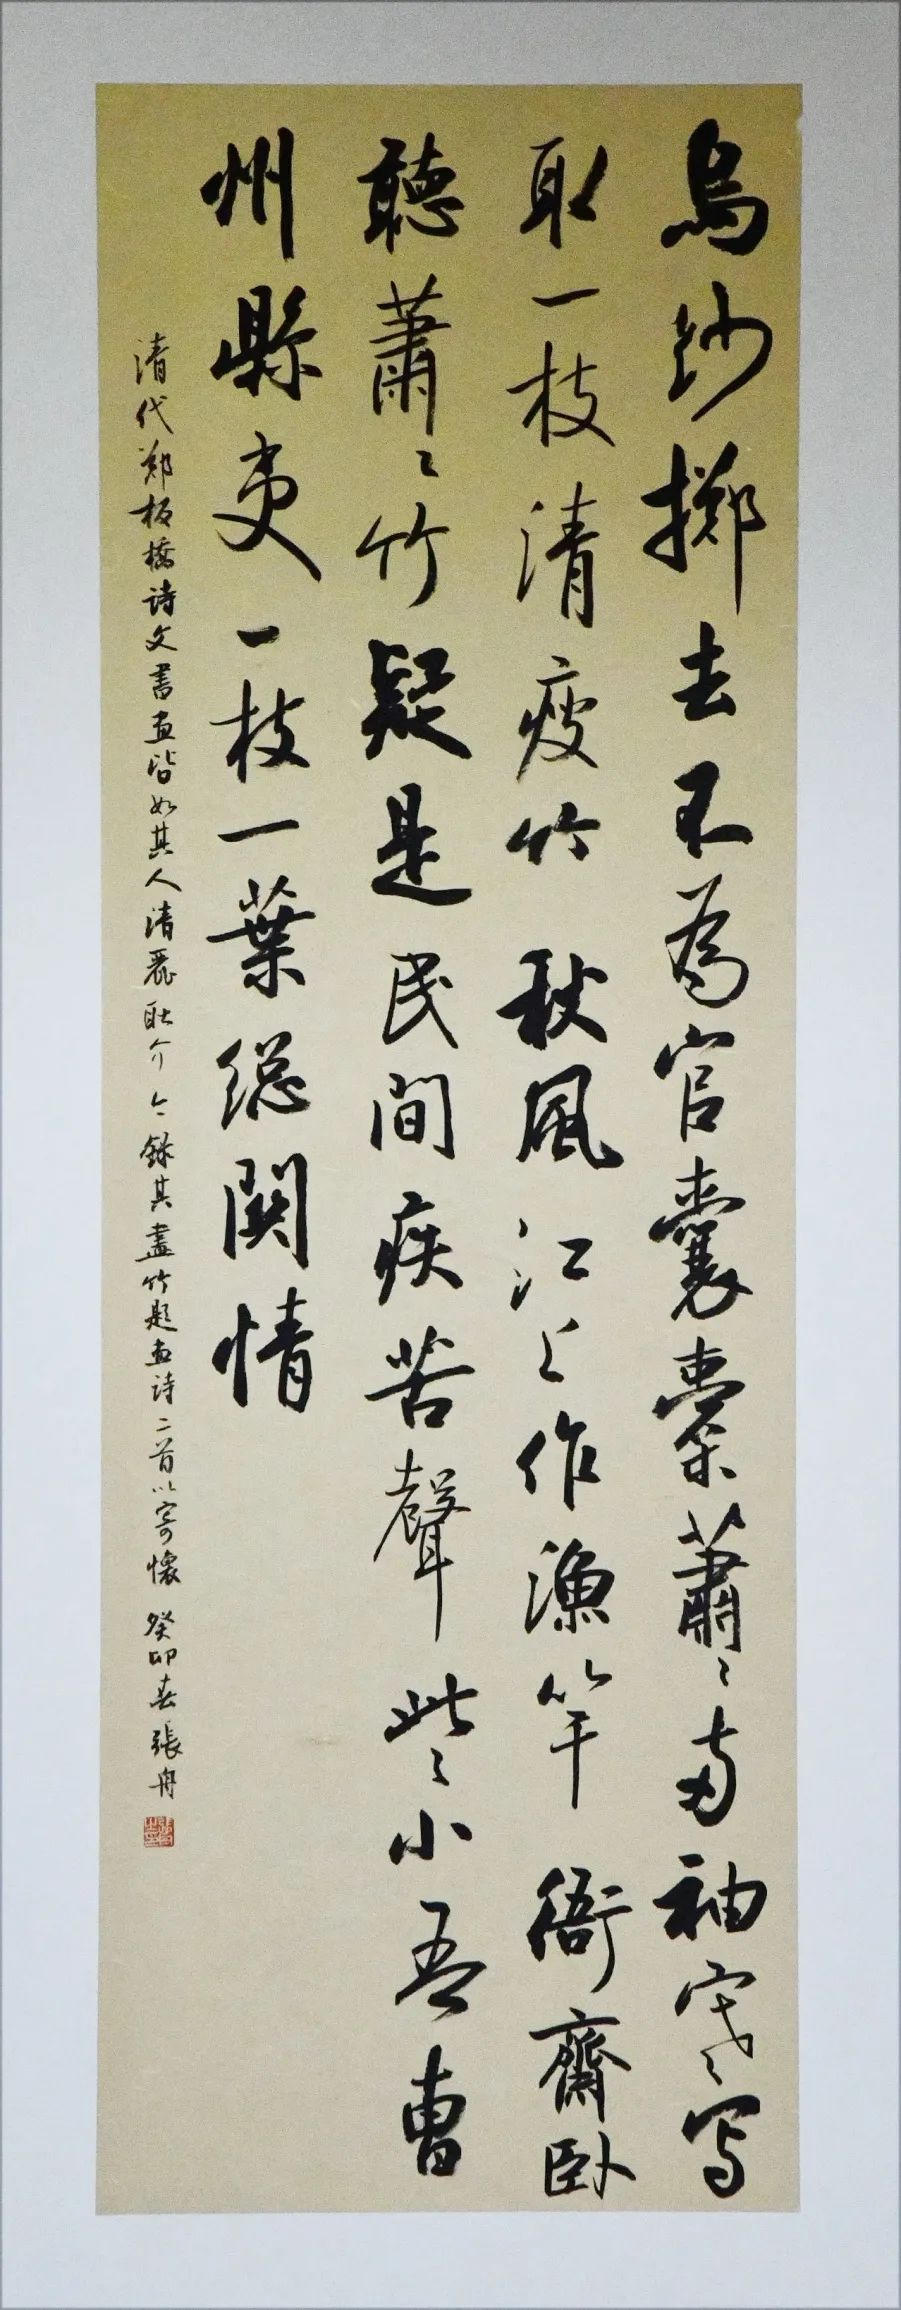 烏紗擲去不為官囊橐蕭〻兩袖寒〻寫
取一枝清瘦竹秋風江上作漁竿衙齋臥
聽蕭〻竹疑是民間疾苦聲些〻小吾曹
州縣吏一枝一葉總關情
清代鄭板橋詩文書畫皆如其人清麗耿介今錄其畫竹題畫詩二首以寄懷癸卯春張舟